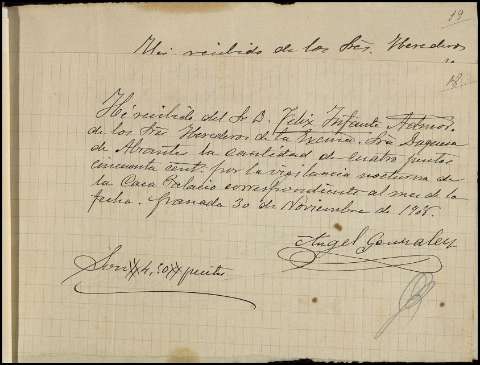 19
Mes recibido de los Sres. Herederos
18.
Hé recibido del Sr D. Felix Infante Admor.
de los Sres Herederos de la Excma. Sra Duquesa
de Abrantes la cantidad de cuatro pesetas
cincuenta cent. por la vigilancia nocturna de
la Casa Palacio correspondiente al mes de la
fecha. Granada 30 de Noviembre de
Angel Gonzalez
Son 4,50 pesetas